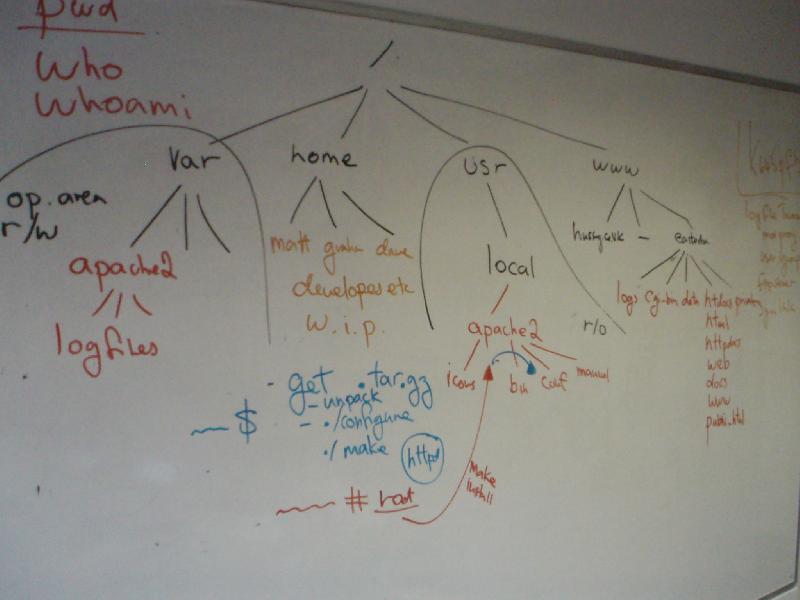 pwd
who
whoami
/
var
home
usr
www
op. area
r/w
apache2
logfiles
matt graham dave
developers etc
w.i.p.
local
apache2
r/o
icons
bin
conf
manual
logs cgi-bin data htdocs private
html
httpdocs
web
docs
www
public_html
- get .tar.gz
- unpack
- ./configure
./ make
httpd
$
# root
Make
install